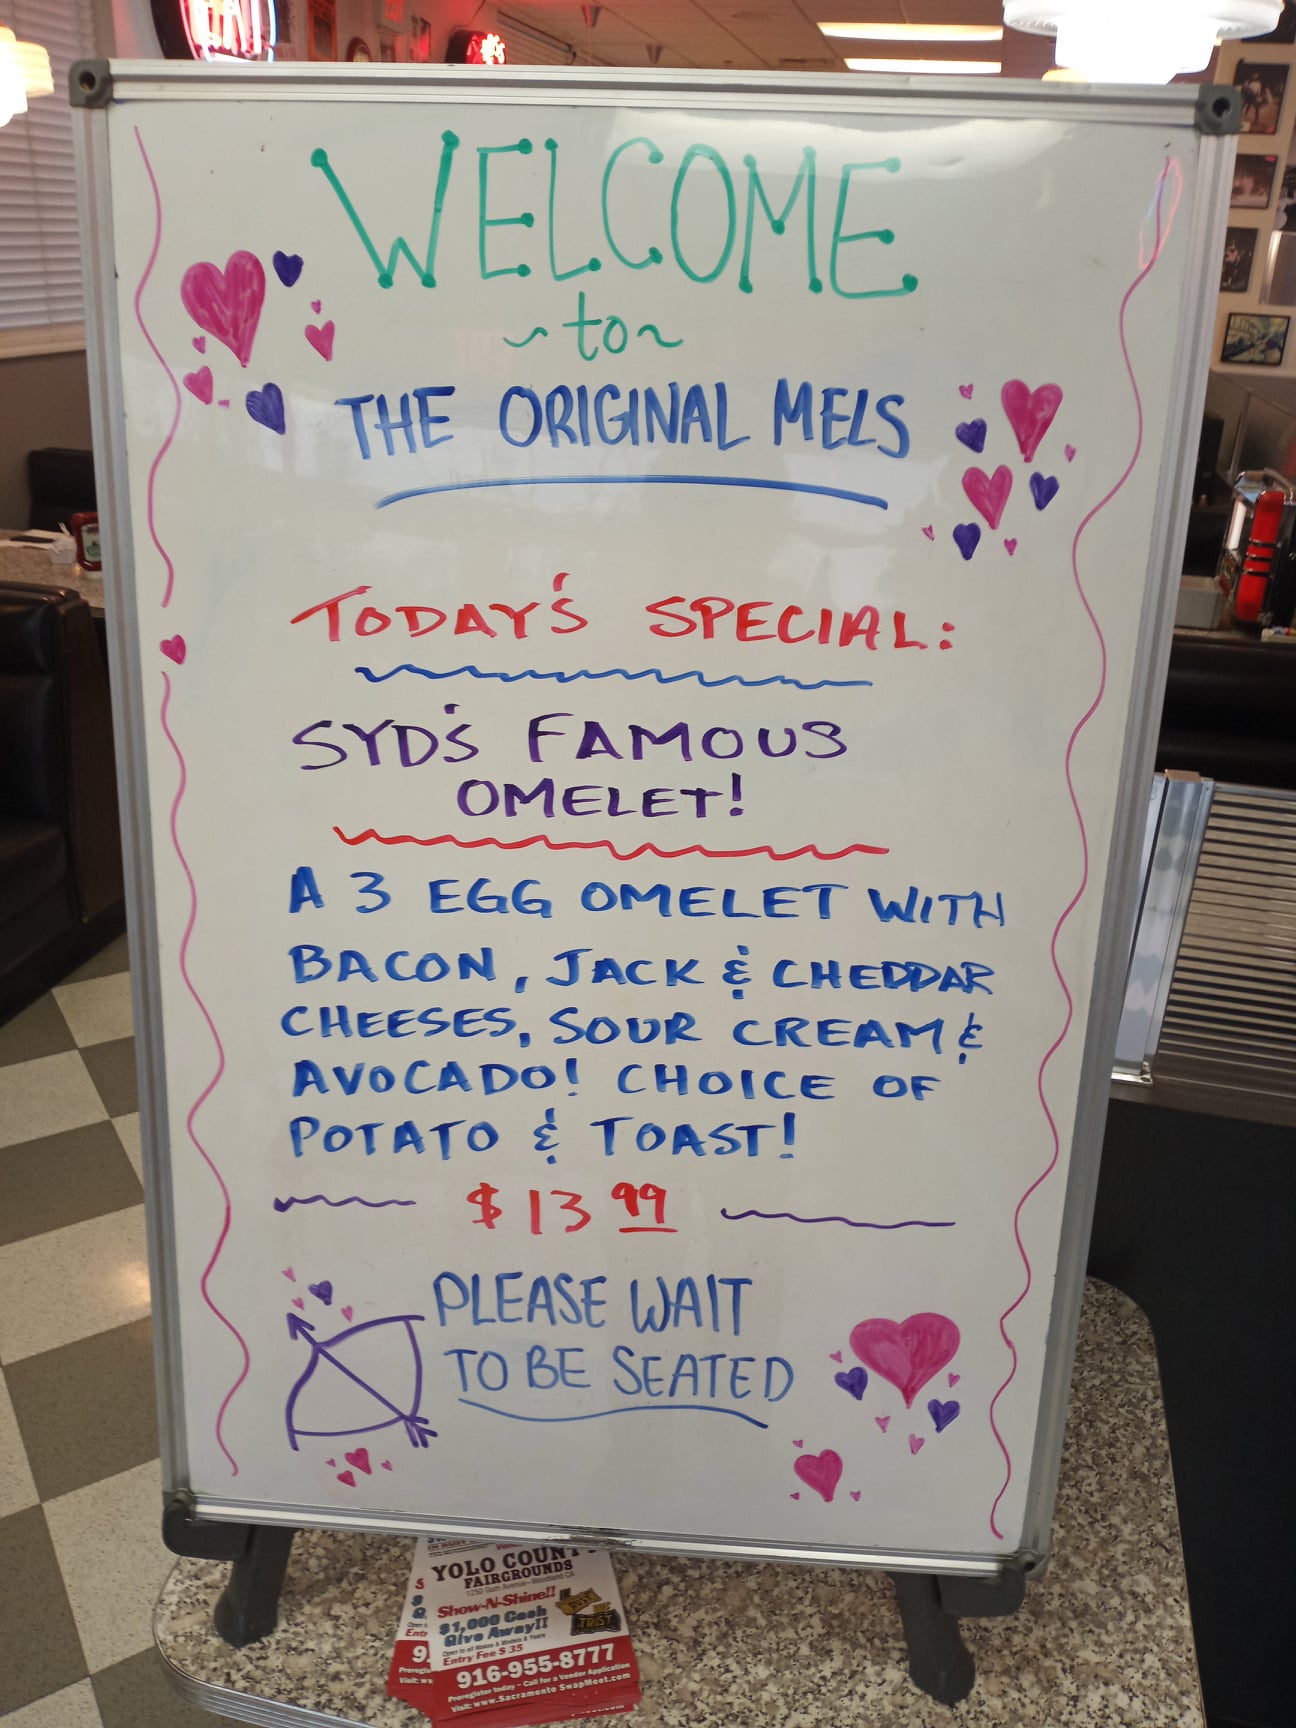 WELCOME
~to~
THE ORIGINAL MELS
TODAY'S SPECIAL:
SYD'S FAMOUS
OMELET!
A 3 EGG OMELET WITH
BACON, JACK & CHEDDAR
CHEESES, SOUR CREAM &
AVOCADO! CHOICE OF
POTATO & TOAST!
$13 99
PLEASE WAIT
TO BE SEATED
YOLO COUNTY
FAIRGROUNDS
1250 Gum Avenue-Woodland CA
Show-N-Shine!!
$1,000 Cash
Give Away!!
Open to all Makes & Models & Years
Entry Fee $ 35
916-955-8777
Preregister today - Call for a Vendor Application
Visit: www.SacramentoSwapMeet.com